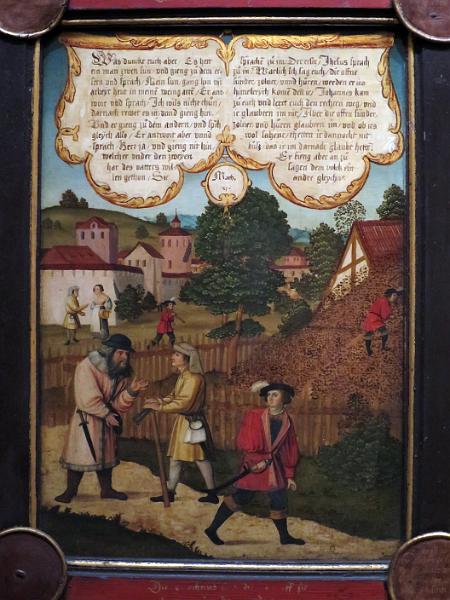 Was dunckt euch aber / Es hett
ein man zwen sun / und gieng zu dem er
sten und sprach / Mein sun / gang hin und
arbeyt heut in meine weingarte / Er ant
wort und sprach / Ich wils nicht thun /
darnach rewet es in / und gieng hin.
Und er gieng zu dem andern / und sprach
gleych also / Er antwort aber unnd
sprach / Herr ja / und gieng nit hin /
welcher under den zweyen
hat des vatters wil
len gethun / Sie
sprachen zu im / Der erste / Jhesus sprach
zu in / Warlich ich sag euch / die offne
sünder, zolner, und hüren / werden ee ins
himelreych komen den ir / Johannes kam
zu euch und leert euch den rechten weg / und
ir glaubten im nit / Aber die offne sünder
zolner und hüren glaubten im / und ob irs
wol sahent / thettent ir dannocht nit
büß / das ir im darnach glaubt hette /
Er fieng aber an zu
sagen dem volck ein
andre gleychnus
Math.